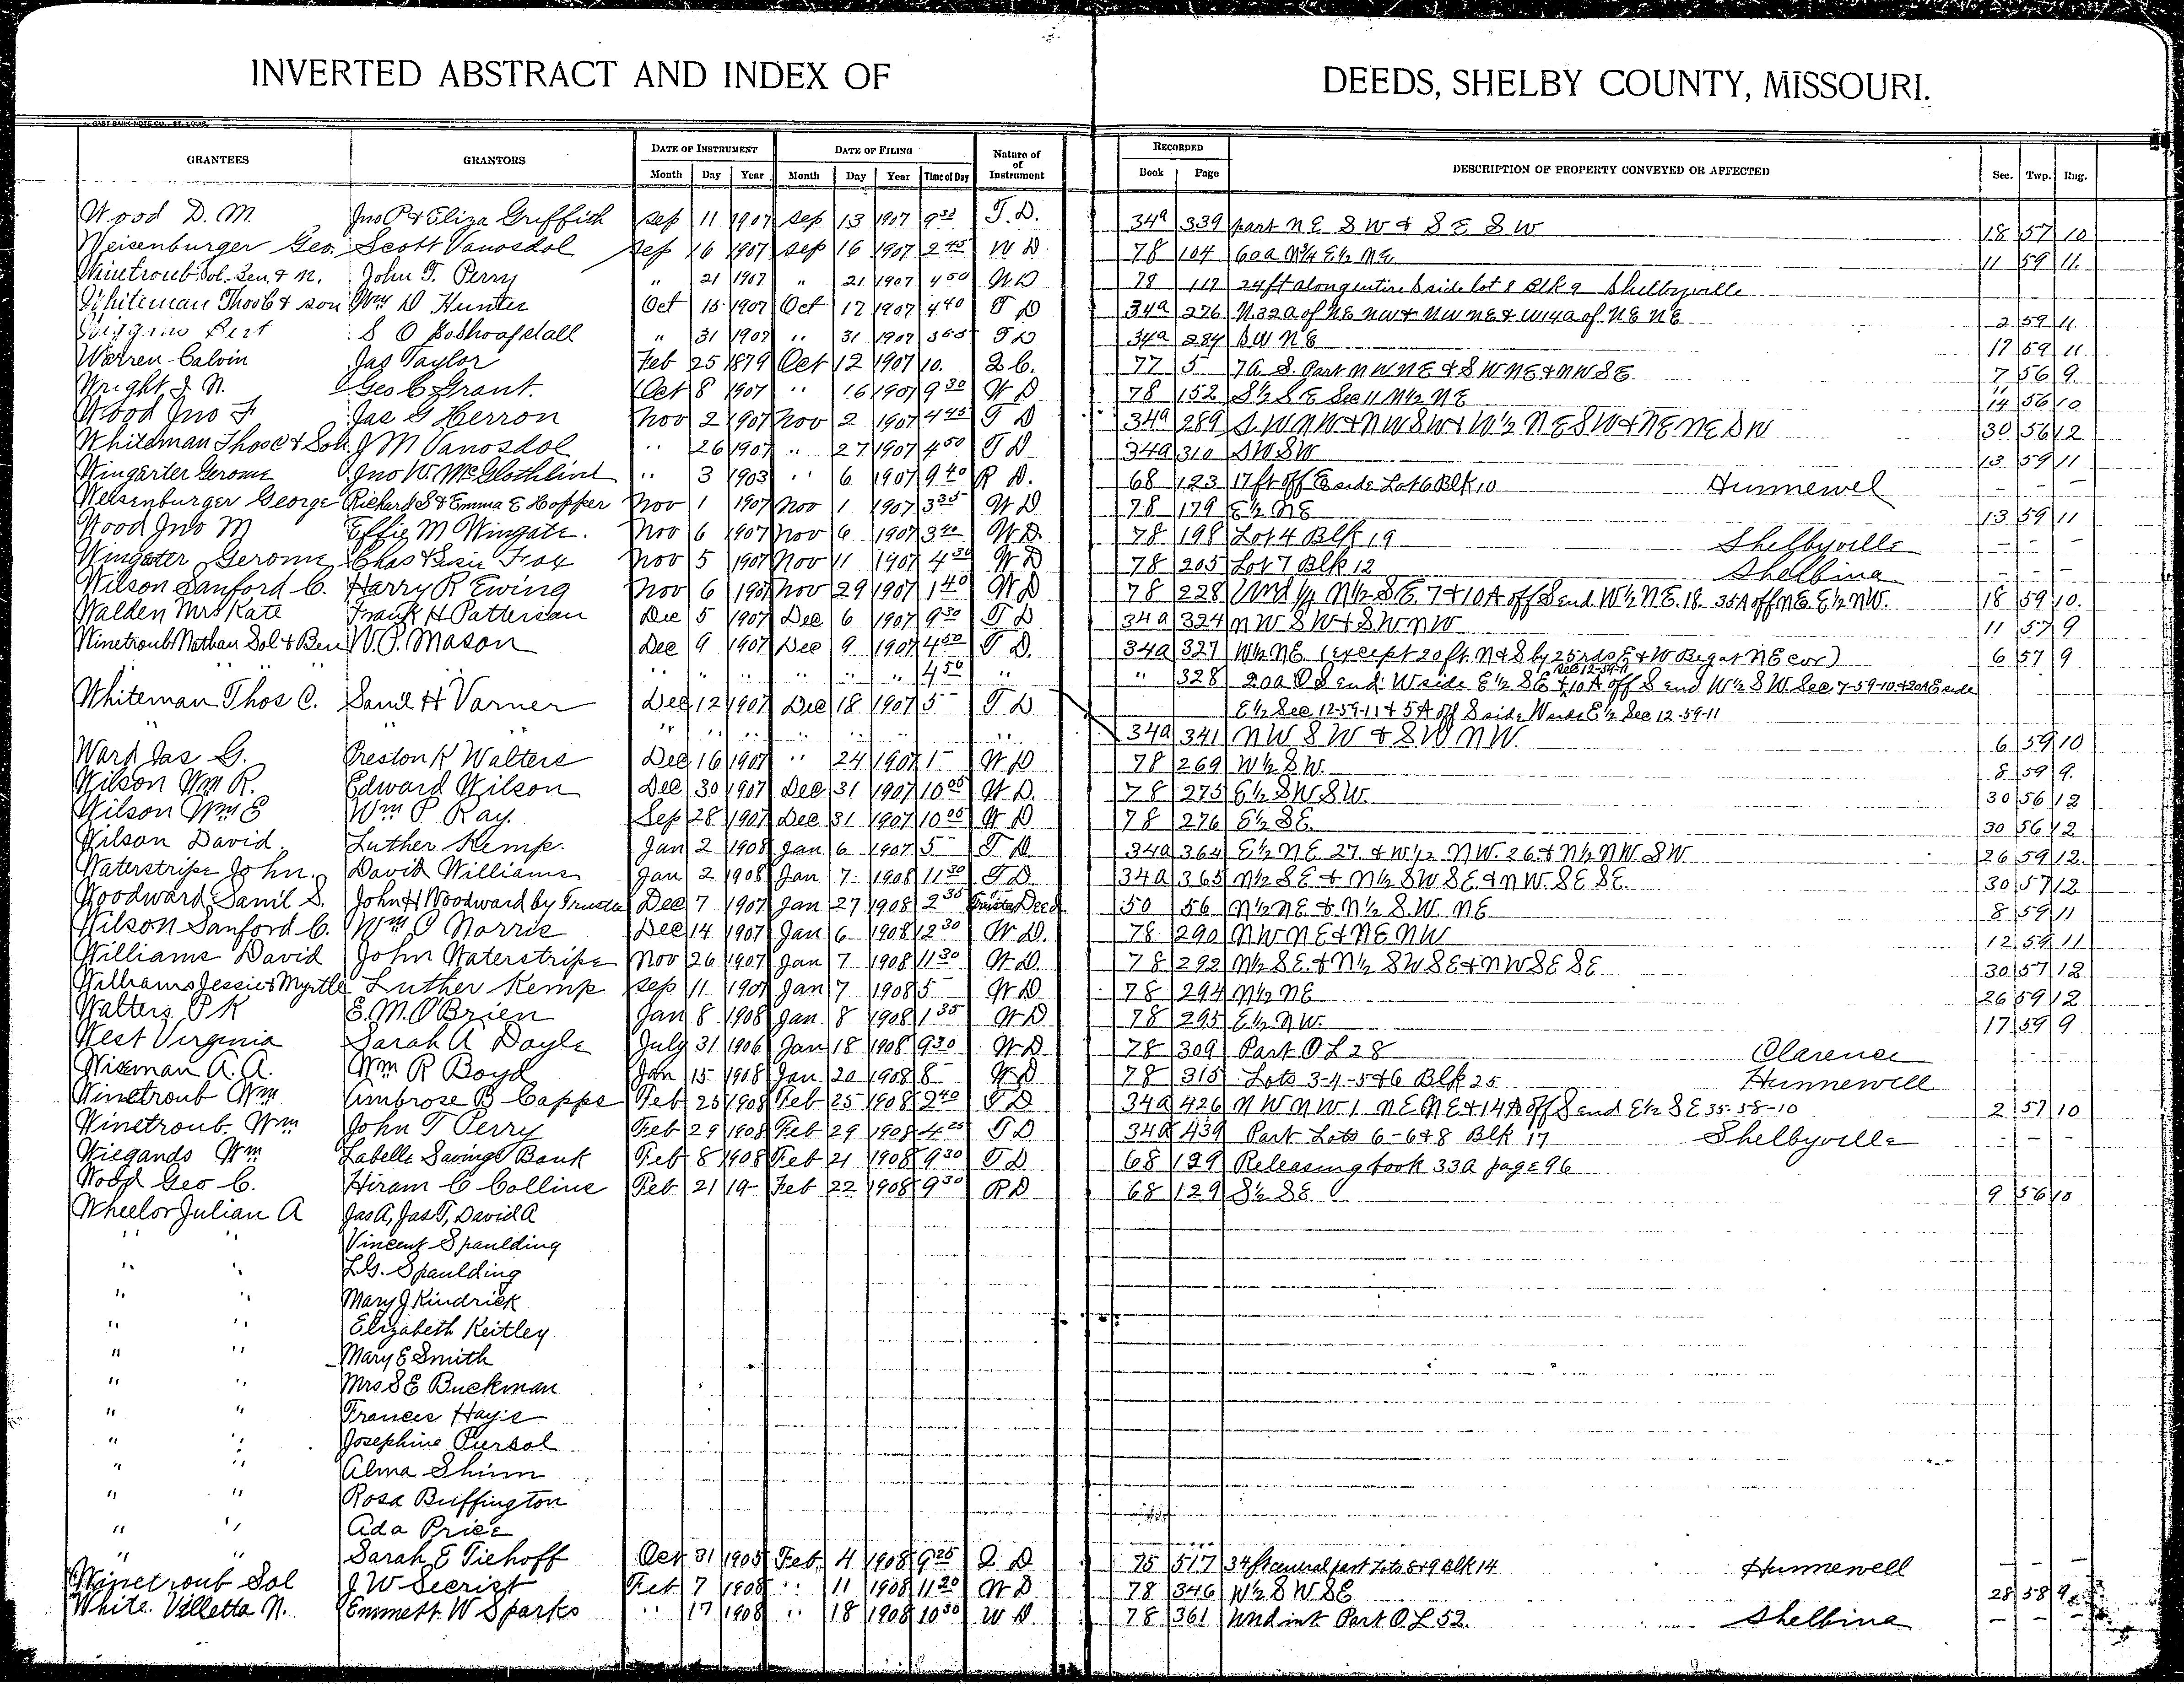 INVERTED ABSTRACT AND INDEX OF DEEDS, SHELBY COUNTY, MISSOURI.
GAST BANK NOTE CO., ST. LOUIS.
DATE OF INSTRUMENT DATE OF FILING Nature of of Instrument RECORDED
GRANTEES GRANTORS Month Day Year Month Day Year Time of Day Book Page DESCRIPTION OF PROPERTY CONVEYED OR AFFECTED Sec. Twp. Rng.
Wood D. M. Jno P & Eliza Griffith Sep 11 1907 Sep 13 1907 9 30 T. D. 34a 339 part NE SW & SE SW 18 57 10
Weisenburger Geo. Scott Vanosdol Sep 16 1907 Sep 16 1907 2 45 W D 78 104 60a E½ NE 11 59 11
Winetroub Sol, Ben, & N. John T. Perry " 21 1907 " 21 1907 4 50 W D 78 117 24ft along entire S side lot 8 Blk 9 Shelbyville
Whiteman Thos C & son Wm D Hunter Oct 15 1907 Oct 17 1907 4 40 T D 34a 276 N 32a of NE NW & NW NE & W 14a of NE NE 2 59 11
Bert S O " 31 1907 " 31 1907 3 55 T D 34a 284 SW NE 17 59 11
Warren Calvin Jas Taylor Feb 25 1879 Oct 12 1907 10. 2 C. 77 5 7a S. Part NW NE & SW NE & NW SE 7 56 9
Wright J. N. Geo C Grant. Oct 8 1907 " 16 1907 9 30 W D 78 152 S½ SE Sec 11 N½ NE 14 56 10
Wood Jno F Jas G Herron Nov 2 1907 Nov 2 1907 4 45 T D 34a 289 SW NW & NW SW & W½ NE SW & NE NE SW 30 56 12
Whiteman Thos C & Son J M Vanosdol " 26 1907 " 27 1907 4 50 T D 34a 310 SW SW 13 59 11
Wingarter Gerome Jno W. McGlothlin " 3 1903 " 6 1907 9 40 R D. 68 123 17 ft off E side Lot 6 Blk 10 Hunnewel - - -
Weisenburger George Richard S & Emma E Hopper Nov 1 1907 Nov 1 1907 3 35 W D 78 179 E½ NE 13 59 11
Wood Jno M Effie M Wingate. Nov 6 1907 Nov 6 1907 3 40 W D. 78 198 Lot 4 Blk 19 Shelbyville - - -
Wingater Gerome Chas & Fox Nov 5 1907 Nov 11 1907 4 30 W D 78 205 Lot 7 Blk 12 Shelbina - - -
Wilson Sanford C. Harry R Ewing Nov 6 1907 Nov 29 1907 1 40 W D 78 228 Und ¼ N½ SE. 7 & 10A off S end W½ NE. 18. 35A off NE. E½ NW. 18 59 10.
Walden Mrs Kate Frank H Patterson Dec 5 1907 Dec 6 1907 9 30 T D 34a 324 NW SW & SW NW 11 57 9
Winetroub Nathan Sol & Ben W. P. Mason Dec 9 1907 Dec 9 1907 4 50 T D. 34a 327 W½ NE. (except 20 ft N & S by 25 rds E & W Beg at NE cor) 6 57 9
" " " " " " " " " 4 50 " " 328 20a O S end W side E½ SE Sec 12-59-11 & 10A off S end W½ SW. Sec. 7-59-10 & 20A E side
Whiteman Thos C. Saml H Varner Dec 12 1907 Dec 18 1907 5 - T D E½ Sec 12-59-11 & 5A off S side W side E½ Sec 12-59-11
" " " " " " 34a 341 NW SW & SW NW. 6 59 10
Ward Jas G. Preston K Walters Dec 16 1907 " 24 1907 1 - W D 78 269 W½ SW. 8 59 9.
Wilson Wm R. Edward Wilson Dec 30 1907 Dec 31 1907 10 05 W D. 78 275 E½ SW SW. 30 56 12
Wilson Wm E Wm P Ray. Sep 28 1907 Dec 31 1907 10 05 W D 78 276 E½ SE. 30 56 12
Wilson David Luther Kemp. Jan 2 1908 Jan 6 1907 5 - T D. 34a 364 E½ NE 27. & W½ NW. 26. & N½ NW SW 26 59 12.
Waterstripe John. David Williams Jan 2 1908 Jan 7. 1908 11 30 T D 34a 365 N½ SE & N½ SW SE & NW. SE SE. 30 57 12
Woodward Saml S. John H Woodward by Trustee Dec 7 1907 Jan 27 1908 2 35 Trustee Deed 50 56 N½ NE & N½ S.W. NE 8 59 11
Wilson Sanford C. Wm O Norris Dec 14 1907 Jan 6 1908 12 30 W D. 78 290 NW NE & NE NW 12 59 11
Williams David John Waterstripe Nov 26 1907 Jan 7 1908 11 30 W D. 78 292 N½ SE. & N½ SW SE & NW SE SE 30 57 12
Williams Jessie & Myrtle Luther Kemp Sep 11 1907 Jan 7 1908 5 - W D 78 294 N½ NE 26 59 12
Walters P K E. M. O'Brien Jan 8 1908 Jan 8 1908 1 35 W D 78 295 E½ NW. 17 59 9
West Virginia Sarah A Doyle July 31 1906 Jan 18 1908 9 30 W D 78 309 Part O L 28 Clarence - - -
Wiseman A. A. Wm R Boyd Jan 15 1908 Jan 20 1908 8 - W D 78 315 Lots 3-4-5 & 6 Blk 25 Hunnewell.
Winetroub Wm Ambrose B Capps Feb 25 1908 Feb 25 1908 2 40 T D 34a 426 NW NW 1 NE NE & 14A off S end E½ SE 35-58-10 2 57 10
Winetroub Wm John T Perry Feb 29 1908 Feb 29 1908 4 25 T D 34a 439 Part Lots 6-6 & 8 Blk 17 Shelbyville - - -
Wiegands Wm Labelle Savings Bank Feb 8 1908 Feb 21 1908 9 30 T D 68 129 Releasing book 33a page 96
Wood Geo C. Hiram C Collins Feb 21 19- Feb 22 1908 9 30 R D 68 129 S½ SE 9 56 10
Wheelor Julian A Jas A, Jas T, David A
" " Vincent Spaulding
" " L.G. Spaulding
" " Mary J Kindrick
" " Elizabeth Keitley
" " Mary E Smith
" " Mrs S E Buckman
" " Frances Hays
" " Josephine Piersol
" " Alma Shinn
" " Rosa Buffington
" " Ada Price
" " Sarah E Tiehoff Oct 31 1905 Feb. 4 1908 9 25 Q D 75 517 34ft central part Lots 8 & 9 Blk 14 Hunnewell - - -
Winetroub Sol J W Secrist Feb 7 1908 " 11 1908 11 20 W D 78 346 W½ SW SE 28 58 9
White. Villetta N. Emmett W Sparks " 17 1908 " 18 1908 10 30 W D. 78 361 Und int Part O.L 52. Shelbina - -